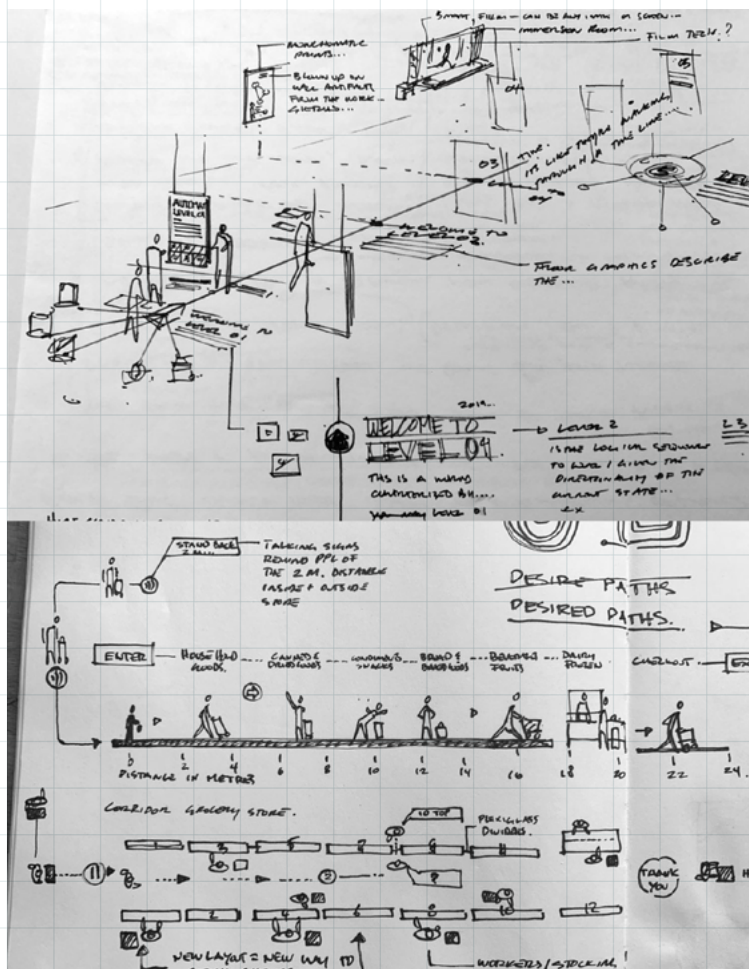 SMART FILM — CAN BE ANY IMAGE OR SCREEN...
IMMERSION ROOM...
FILM TECH.?
MONOCHROMATIC
PRINTS...
BLOWN UP ON
WALL
FROM THE WORK
04
05
03
TIME.
IT'S LIKE WALKING
THROUGH A TIME LINE...
AUTOMAT
LEVEL 01
WELCOME TO
LEVEL 02.
FLOOR GRAPHICS DESCRIBE
THE...
WELCOME TO
LEVEL 01
2019...
WELCOME TO
LEVEL 04
THIS IS A
LEVEL 01
LEVEL 2
IS THE LOGICAL SEQUENCE
TO LEVEL 1 GIVEN THE
DIRECTIONALITY OF THE
CURRENT STATE...
EX
STAND BACK
2 M...
TALKING SIGNS
REMIND PPL OF
THE 2 M. DISTANCE
INSIDE + OUTSIDE
STORE
DESIRE PATHS
DESIRED PATHS.
ENTER
HOUSE HOLD
GOODS.
CANNED &
DRIED GOODS
CONDIMENTS
SNACKS
BREAD &
BAKED GOODS
BEVERAGES
FRUITS
DAIRY
FROZEN
CHECKOUT
0 2 4 6 8 10 12 14 16 18 20 22 24
DISTANCE IN METRES
CORRIDOR GROCERY STORE.
PLEXIGLASS
DIVIDERS.
3 5 7
2 4 6 8 10 12
THANK
YOU
NEW LAYOUT = NEW WAY TO
WORKERS / STOCKING!